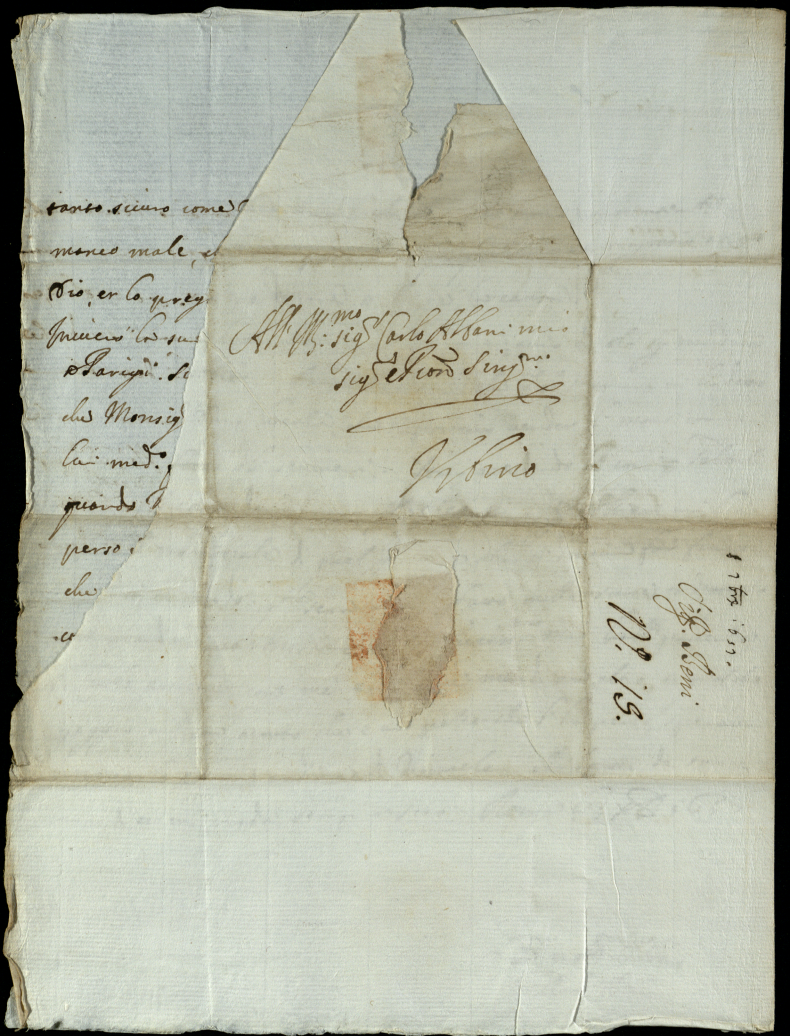 tanto sicuro come
manco male, 
Dio, er lo preg
la su
Parigi. S
che Monsig
lui med.º
quando
perso
che
All' Ill:mo sig.r Carlo Albani mio
sig.r e Pron Sing.mo
Urbino
8 7bre 1657.
Sig. Beni
Nº. 18.